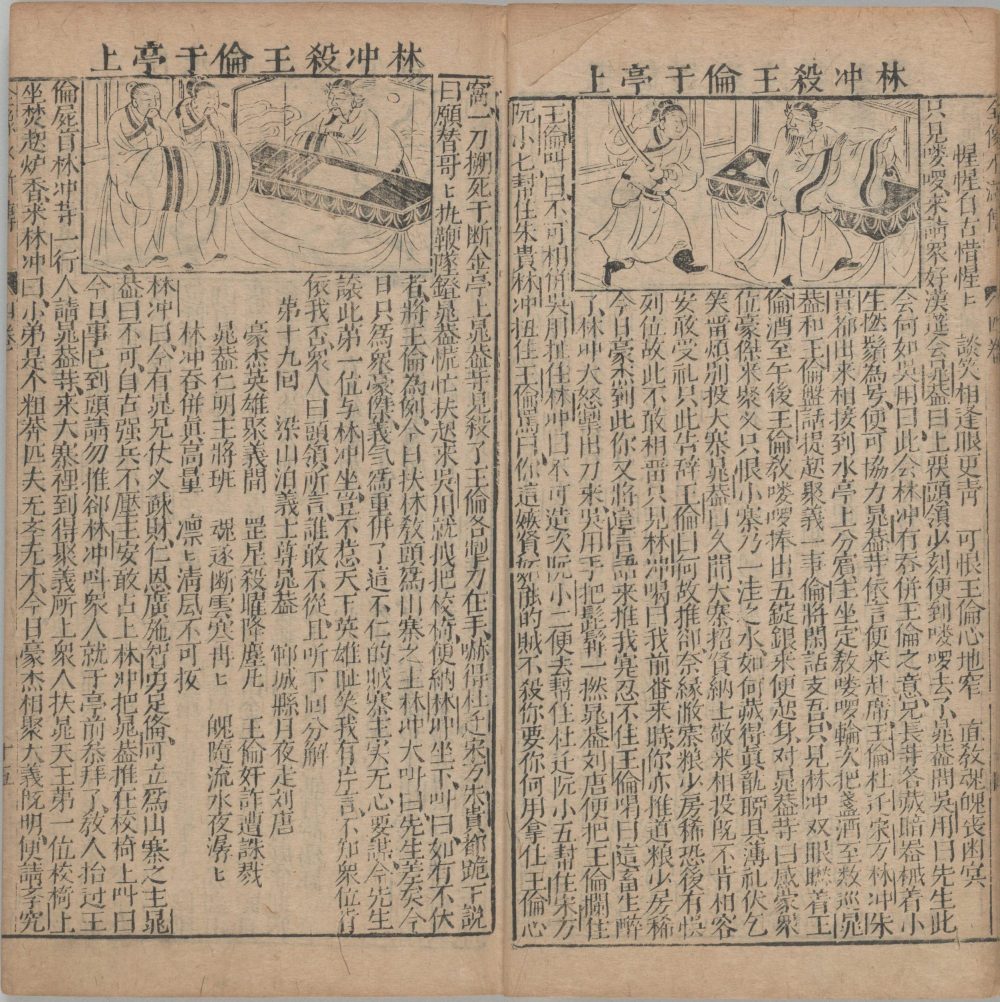 林冲殺王倫于亭上
惺惺自古惜惺匕　談笑相逢眼更青　可恨王倫心地窄　直教魂魄喪幽冥
只見嘍嘍來請眾好漢筵会晁蓋曰上覆頭領少刻便到嘍嘍去了晁蓋問吳用曰先生此
会何如吳用曰此公林冲有吞併王倫之意兄長等各藏暗器械着小
生撚鬚為号便可協力晁蓋等依言便來赴席王倫杜迁宋万林冲朱
貴都出來相接到水亭上分賓主坐定教嘍嘍輪次把盞酒至数巡晁
蓋和王倫盤話提起聚義一事倫將閑話支吾只見林冲双眼瞅着王
倫酒至午後王倫教嘍嘍捧出五錠銀來便起身对晁蓋等曰感蒙眾
位豪傑來聚义只恨小寨乃一洼之水如何藏得眞龍聊具薄礼伏乞
笑畱煩別投大寨晁蓋曰久聞大寨招賢納士敬來相投既不肯相容
安敢受礼只此告辞王倫曰何故推卻奈緣敝寨粮少房稀恐後有悞
列位故此不敢相畱只見林冲喝曰我前番来時你亦推道粮少房稀
今日豪杰到此你又將這言語來推我寔忍不住王倫喝曰這畜生醉
了林冲大怒掣出刀來吳用手把髭髯一撚晁蓋刘唐便把王倫攔住
王倫叫曰不可相併吳用扯住林冲曰不可造次阮小二便去幇住杜迁阮小五幇住宋万
阮小七幇住朱貴林冲扭住王倫罵曰你這嫉賢妬能的賊不殺你要你何用拿住王倫心
林冲殺王倫于亭上
窩一刀搠死于断金亭上晁蓋等見殺了王倫各掣刀在手嚇得杜迁宋万朱貴都跪下說
曰願替哥匕执鞭墜鐙晁蓋慌忙扶起來吳用就曳把校椅便納林冲坐下叫曰如有不伏
者將王倫為例今日扶林教頭為山寨之主林冲大叫曰先生差矣今
日只為眾豪傑義気為重併了這不仁的贼寨主实无心要謀今先生
讓此第一位与林冲坐豈不惹天下英雄耻笑我有片言不知眾位肯
依我否眾人曰頭領所言誰敢不從且听下回分解
第十九回　梁山泊義士尊晁蓋　鄆城縣月夜走刘唐
豪杰英雄聚義間　罡星殺曜降塵凡　王倫奸詐遭誅戮
晁蓋仁明主將班　魂逐断雲寒冉匕　魄隨流水夜潺匕
林冲吞併眞高量　凛匕清風不可扳
林冲曰今有晁兄仗义疎財仁恩廣施智勇足俻可立為山寨之主晁
蓋曰不可自古强兵不壓主安敢占上林冲把晁蓋推在校椅上叫曰
今日事已到頭請勿推卻林冲叫眾人就于亭前恭拜了教人抬过王
倫屍首林冲等一行人請晁蓋等來大寨裡到得聚義所上眾人扶晁天王第一位校椅上
坐焚起炉香來林冲曰小弟是个粗莽匹夫无孝无木今日豪杰相聚大義既明便請孝究